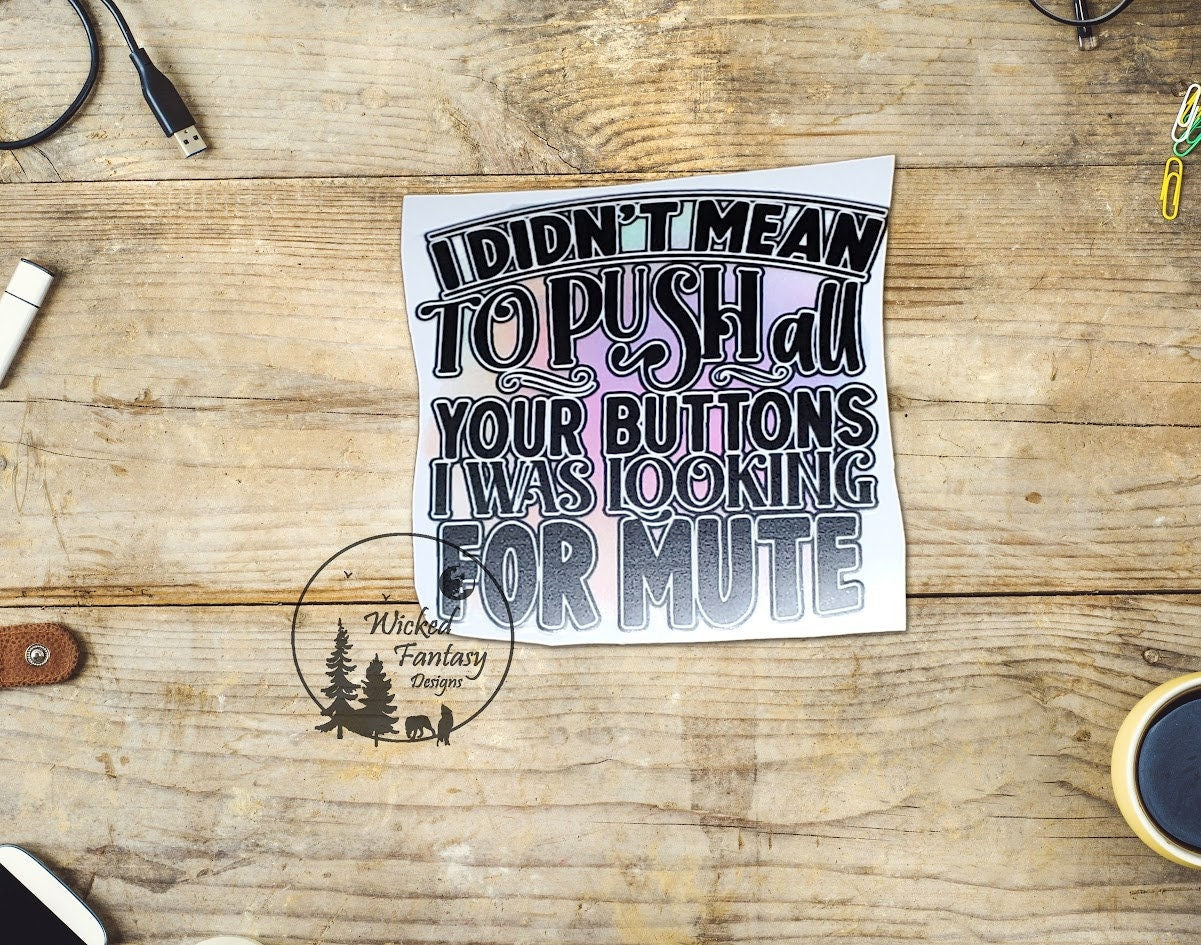 I DIDN'T MEAN
TO PUSH all
YOUR BUTTONS
I WAS LOOKING
FOR MUTE
Wicked
Fantasy
Designs